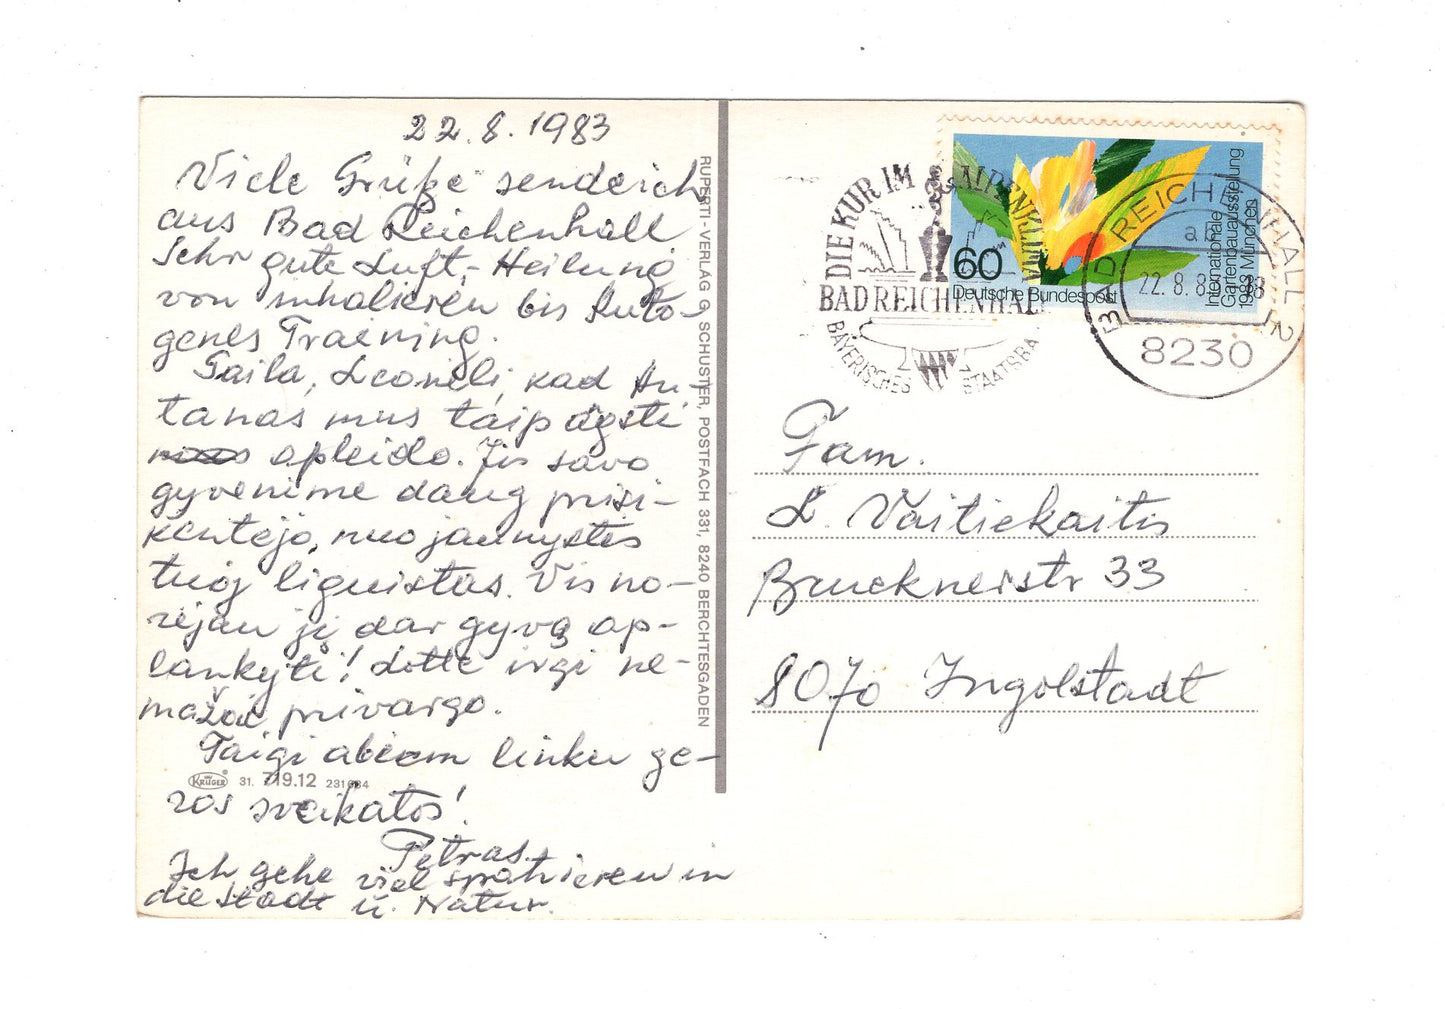 22.8.1983
Viele Grüße sende ich
aus Bad Reichenhall
Sehr gute Luft,- Heilung
von inhalieren bis Auto-
genes Traening.
Gaila, Leonėli, kad An-
tanas mus taip ągsti
apleido. Jis savo
gyvenime daug prisi-
kentėjo, nuo jaunystės
tuoj liguistas. Vis no-
rėjau jį dar gyvą ap-
lankyti! Lotte irgi ne-
mažai privargo.
Taigi abiem linku ge-
ros sveikatos!
Petras
Ich gehe viel spatzieren in
die Stadt u. Natur.
KRÜGER 31. 719.12
RUPERTI-VERLAG G. SCHUSTER, POSTFACH 331, 8240 BERCHTESGADEN
DIE KUR IM ALPENKLIMA
BAD REICHENHALL
BAYERISCHES STAATSBAD
60
Deutsche Bundespost
Internationale
Gartenbauausstellung
1983 München
BAD REICHENHALL 2
22.8.83
8230
Fam.
L. Vaitiekaitis
Brucknerstr 33
8070 Ingolstadt